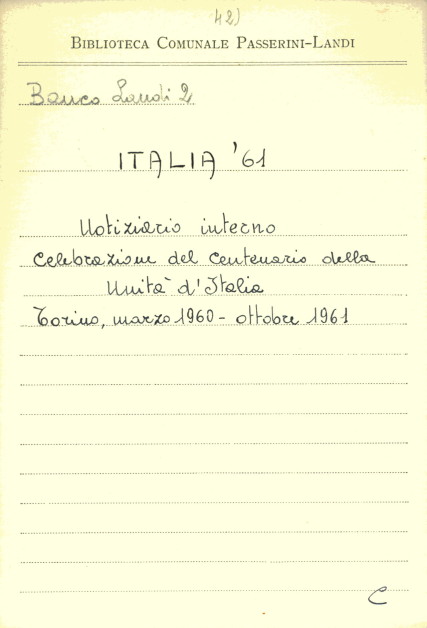 42)
BIBLIOTECA COMUNALE PASSERINI-LANDI
Banco Landi 2
ITALIA '61
Notiziario interno
Celebrazione del Centenario della
Unità d'Italia
Torino, marzo 1960 - ottobre 1961
C